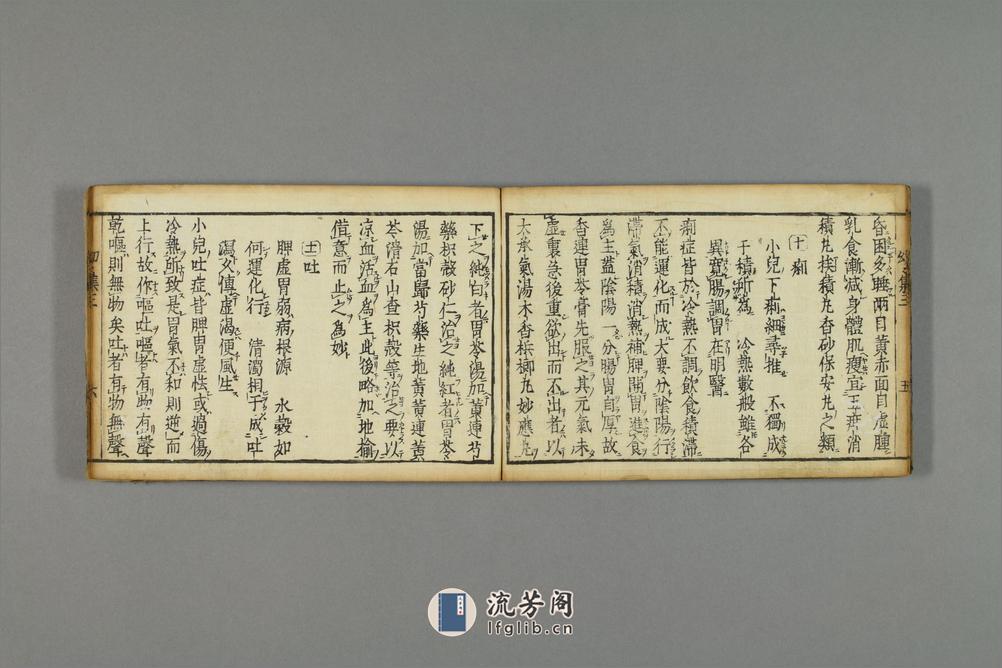 昏困多睡兩目黃赤面目虛腫
乳食漸減身體肌瘦宜三稜消
積丸挨積丸杏砂保安丸之類
[十]痢
小兒下痢細尋推 不獨成
于積所為 冷熱數般雖各
異寬腸調胃在明醫
痢症皆於冷熱不調飲食積滯
不能運化而成大要分陰陽行
滯氣消積消熱補脾開胃進食
為主蓋陰陽一分腸胃自厚故
香連胃苓膏先服之其元氣未
虛裏急後重欲出而不出者以
大承氣湯木香梹榔丸妙應丸
五
下之純白者胃苓湯加黃連芍
藥枳殼砂仁治之純紅者胃苓
湯加當歸芍藥生地黃黃連黃
芩滑石山查枳殼等治之要以
凉血活血為主此後略加地榆
借意而止之為妙
[十一]吐
脾虛胃弱病根源 水穀如
何運化行 清濁相干成吐
瀉久傎虛渴便風生
小兒吐症皆脾胃虛怯或過傷
冷熱所致是胃氣不和則逆而
上行故作嘔吐嘔者有物有聲
乾嘔則無物矣吐者有物無聲
六
流芳阁
lfglib.cn